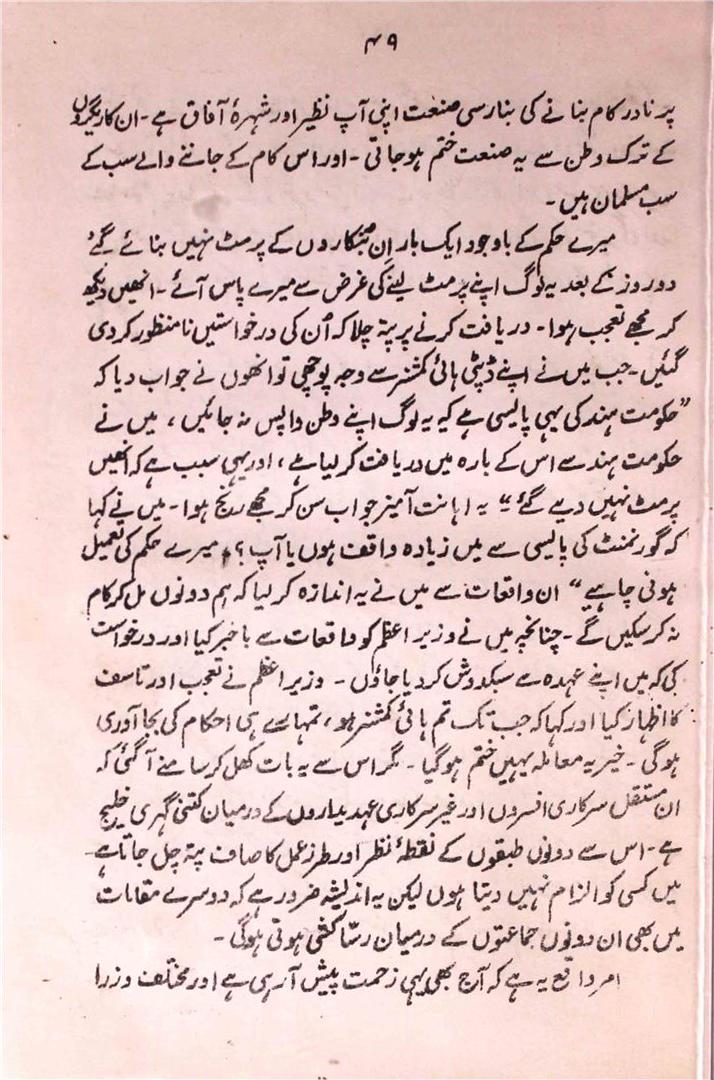 ۴۹
پر نادر کام بنانے کی بنارسی صنعت اپنی آپ نظیر اور شہرۂ آفاق ہے۔ ان کاریگروں
کے ترک وطن سے یہ صنعت ختم ہو جاتی۔ اور اس کام کے جاننے والے سب کے
سب مسلمان ہیں۔
میرے حکم کے باوجود ایک بار ان صنعتکاروں کے پرمٹ نہیں بنائے گئے
دو روز کے بعد یہ لوگ اپنے پرمٹ لینے کی غرض سے میرے پاس آئے۔ انھیں دیکھ
کر مجھے تعجب ہوا۔ دریافت کرنے پر پتہ چلا کہ اُن کی درخواستیں نامنظور کردی
گئیں۔ جب میں نے اپنے ڈپٹی ہائی کمشنر سے وجہ پوچھی تو انھوں نے جواب دیا کہ
”حکومت ہند کی یہی پالیسی ہے کہ یہ لوگ اپنے وطن واپس نہ جائیں، میں نے
حکومت ہند سے اس کے بارہ میں دریافت کر لیا ہے، اور یہی سبب ہے کہ انھیں
پرمٹ نہیں دیے گئے“ یہ اہانت آمیز جواب سن کر مجھے رنج ہوا۔ میں نے کہا
کہ گورنمنٹ کی پالیسی سے میں زیادہ واقف ہوں یا آپ؟ میرے حکم کی تعمیل
ہونی چاہیے“ ان واقعات سے میں نے یہ اندازہ کر لیا کہ ہم دونوں مل کر کام
نہ کر سکیں گے۔ چنانچہ میں نے وزیر اعظم کو واقعات سے باخبر کیا اور درخواست
کی کہ میں اپنے عہدہ سے سبکدوش کر دیا جاؤں۔ وزیر اعظم نے تعجب اور تاسف
کا اظہار کیا اور کہا کہ جب تک تم ہائی کمشنر ہو، تمہارے ہی احکام کی بجا آوری
ہوگی۔ خیر یہ معاملہ یہیں ختم ہو گیا۔ مگر اس سے یہ بات کھل کر سامنے آ گئی کہ
ان مستقل سرکاری افسروں اور غیر سرکاری عہدیداروں کے درمیان کتنی گہری خلیج
ہے۔ اس سے دونوں طبقوں کے نقطۂ نظر اور طرز عمل کا صاف پتہ چل جاتا ہے
میں کسی کو الزام نہیں دیتا ہوں لیکن یہ اندیشہ ضرور ہے کہ دوسرے مقامات
میں بھی ان دونوں جماعتوں کے درمیان رسّا کشی ہوتی ہوگی۔
امر واقع یہ ہے کہ آج بھی یہی زحمت پیش آ رہی ہے اور مختلف وزرا